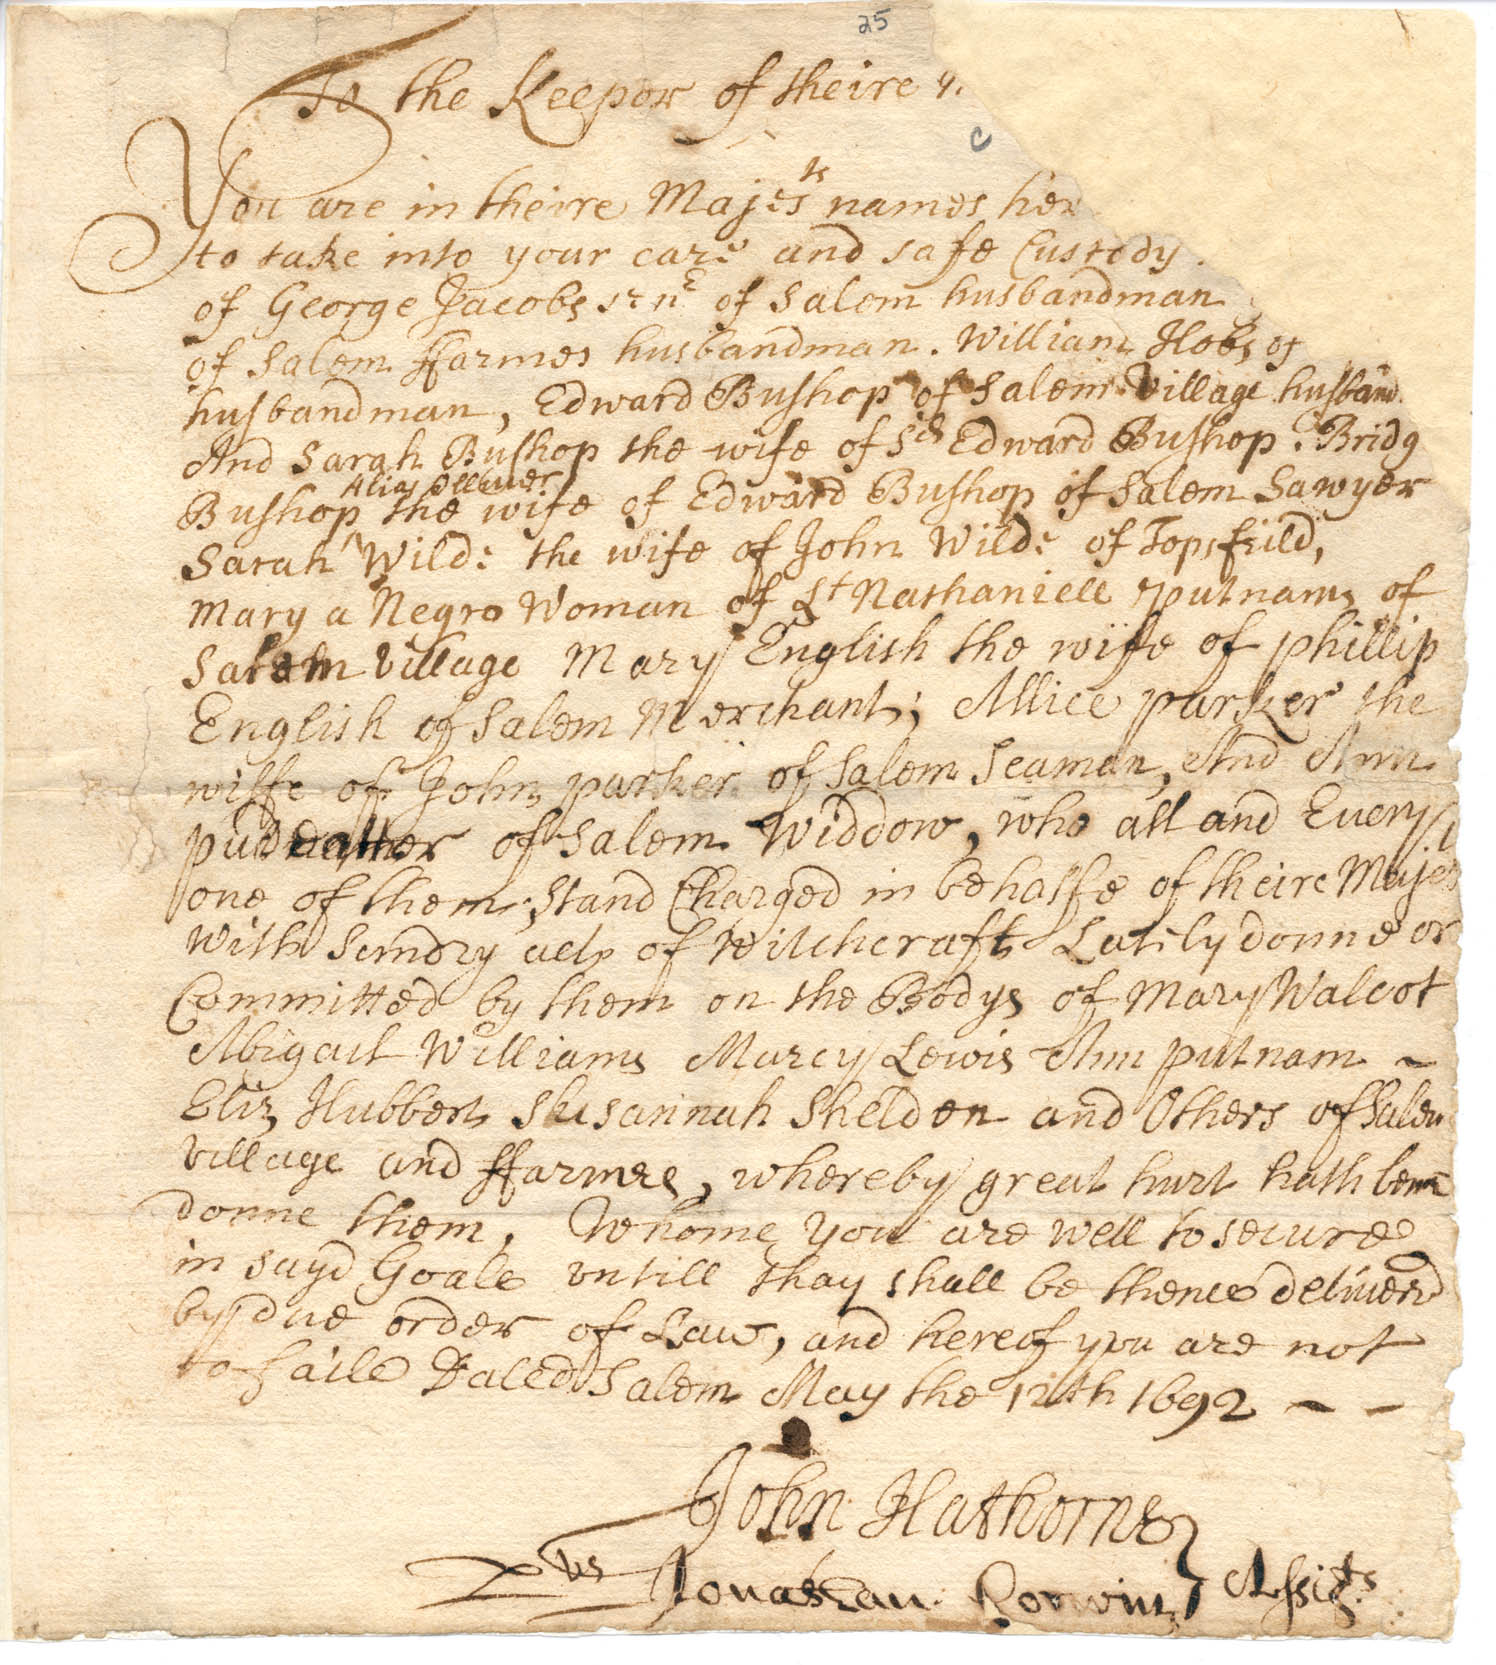 25
To the Keeper of theire
C
You are in theire Majests names her
to take into your care and safe Custody
of George Jacobs senr of Salem husbandman
of Salem ffarmes husbandman. William Hobs of
husbandman, Edward Bushop of Salem Village husband
And Sarah Bushop the wife of sd Edward Bushop. Bridg
Alias Olleuer
Bushop ^ the wife of Edward Bushop of Salem Sawyer
Sarah Wilds the wife of John Wilds of Topsfeild,
Mary a Negro Woman of Lt Nathaniell putnams of
Salem Village Mary English the wife of phillip
English of Salem Merchant; Allice parker the
wiffe of John parker of Salem Seaman, And Ann
pudeatter of Salem Widdow, who all and Euery
one of them, Stand Charged in behalfe of theire Majes
With Sundry acts of Witchcraft Lately donne or
Committed by them on the Bodys of Mary Walcot
Abigail Williams Marcy Lewis Ann putnam ~
Eliz Hubbert Susannah Sheldon and Others of Salem
Village and ffarmes, whereby great hurt hath bene
donne them, Whome you are well to secure
in sayd Goale vntill thay shall be thence deliuerd
by due order of Law, and hereof you are not
to faile Dated Salem May the 12th 1692 – –
John Hathorne
P us Jonathan Corwin Assists